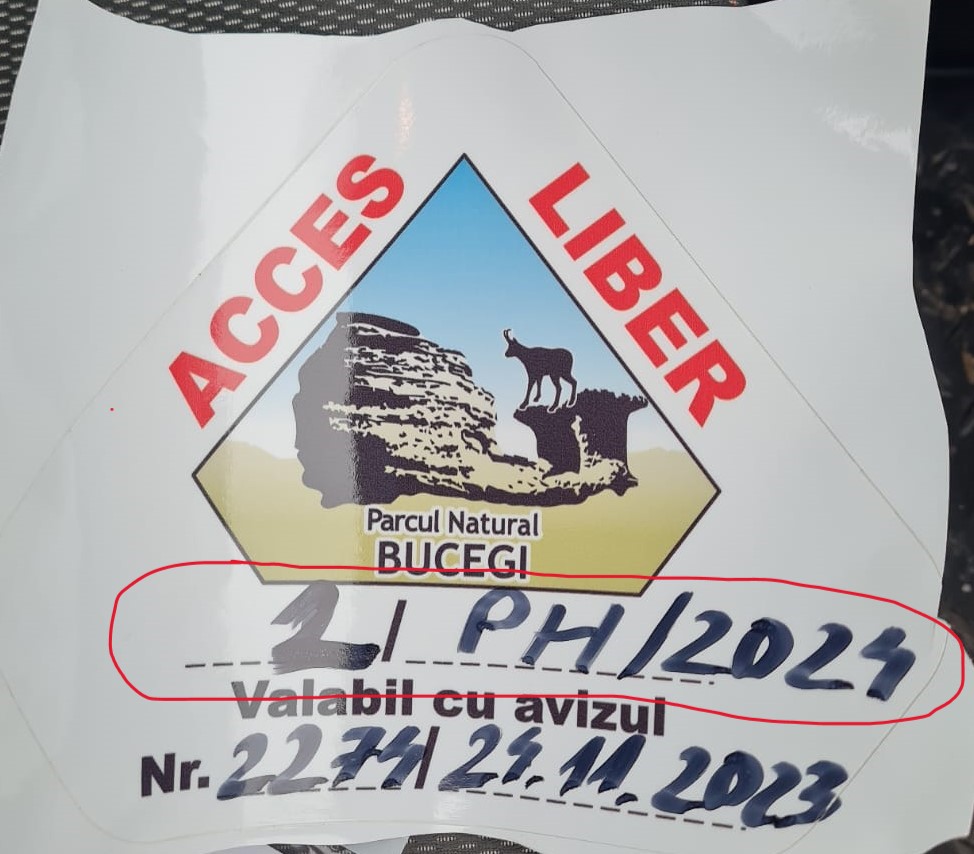 ACCES LIBER
Parcul Natural
BUCEGI
2 / PH/2024
Valabil cu avizul
Nr. 2274/ 24.11.2023